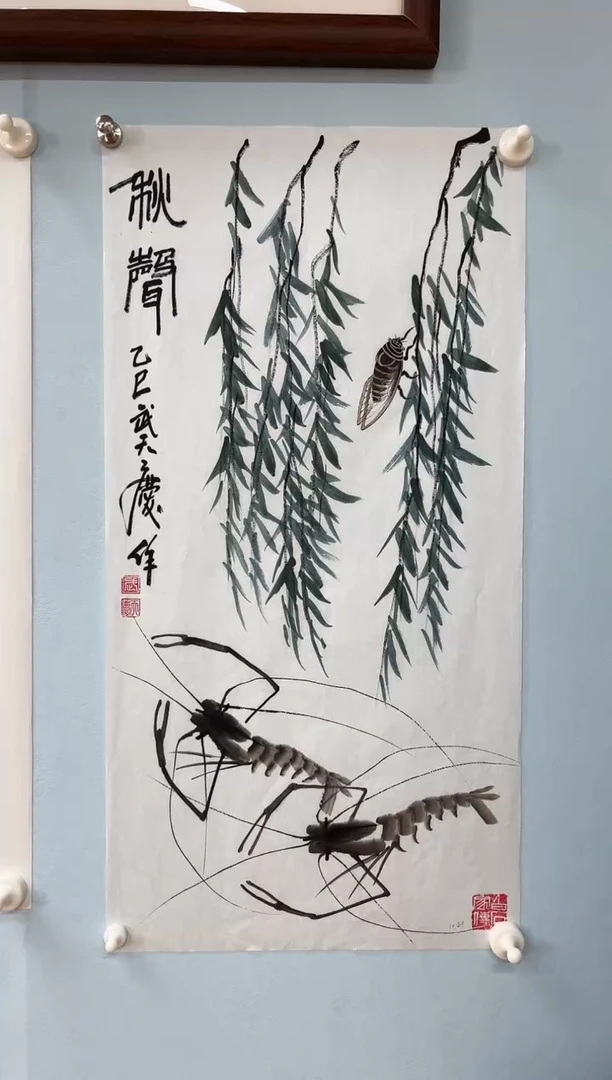 秋聲
乙巳武天慶作